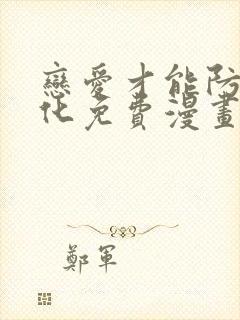 戀愛才能防
化免費漫畫
鄭軍